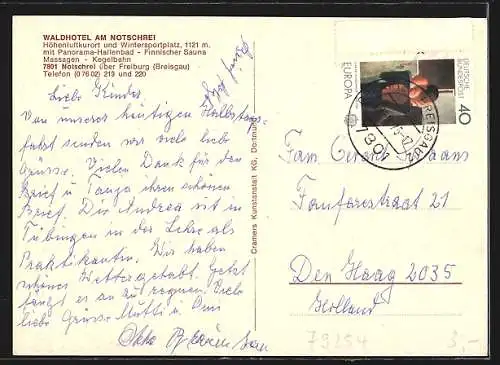 WALDHOTEL AM NOTSCHREI
Höhenluftkurort und Wintersportplatz, 1121 m.
mit Panorama-Hallenbad - Finnischer Sauna
Massagen - Kegelbahn
7801 Notschrei über Freiburg (Breisgau)
Telefon (0 76 02) 219 und 220
Liebe Kinder
Von unserer heutigen Halbtags-
fahrt senden wir viele liebe
Grüsse. Vielen Dank für den
Brief u Tanja ihren schönen
Brief. Die Andrea ist in
Tübingen in der Lehre als
Praktikantin. Wir haben
schönes Wetter gehabt. Jetzt
fängt es an zu regnen. Liebe
liebe Grüsse Mutti u Oma
Cramers Kunstanstalt KG, Dortmund
EUROPA
DEUTSCHE
BUNDESPOST
40
BREISGAU
780
Fam.
21
Den Haag 2035
Holland
79254
3,-